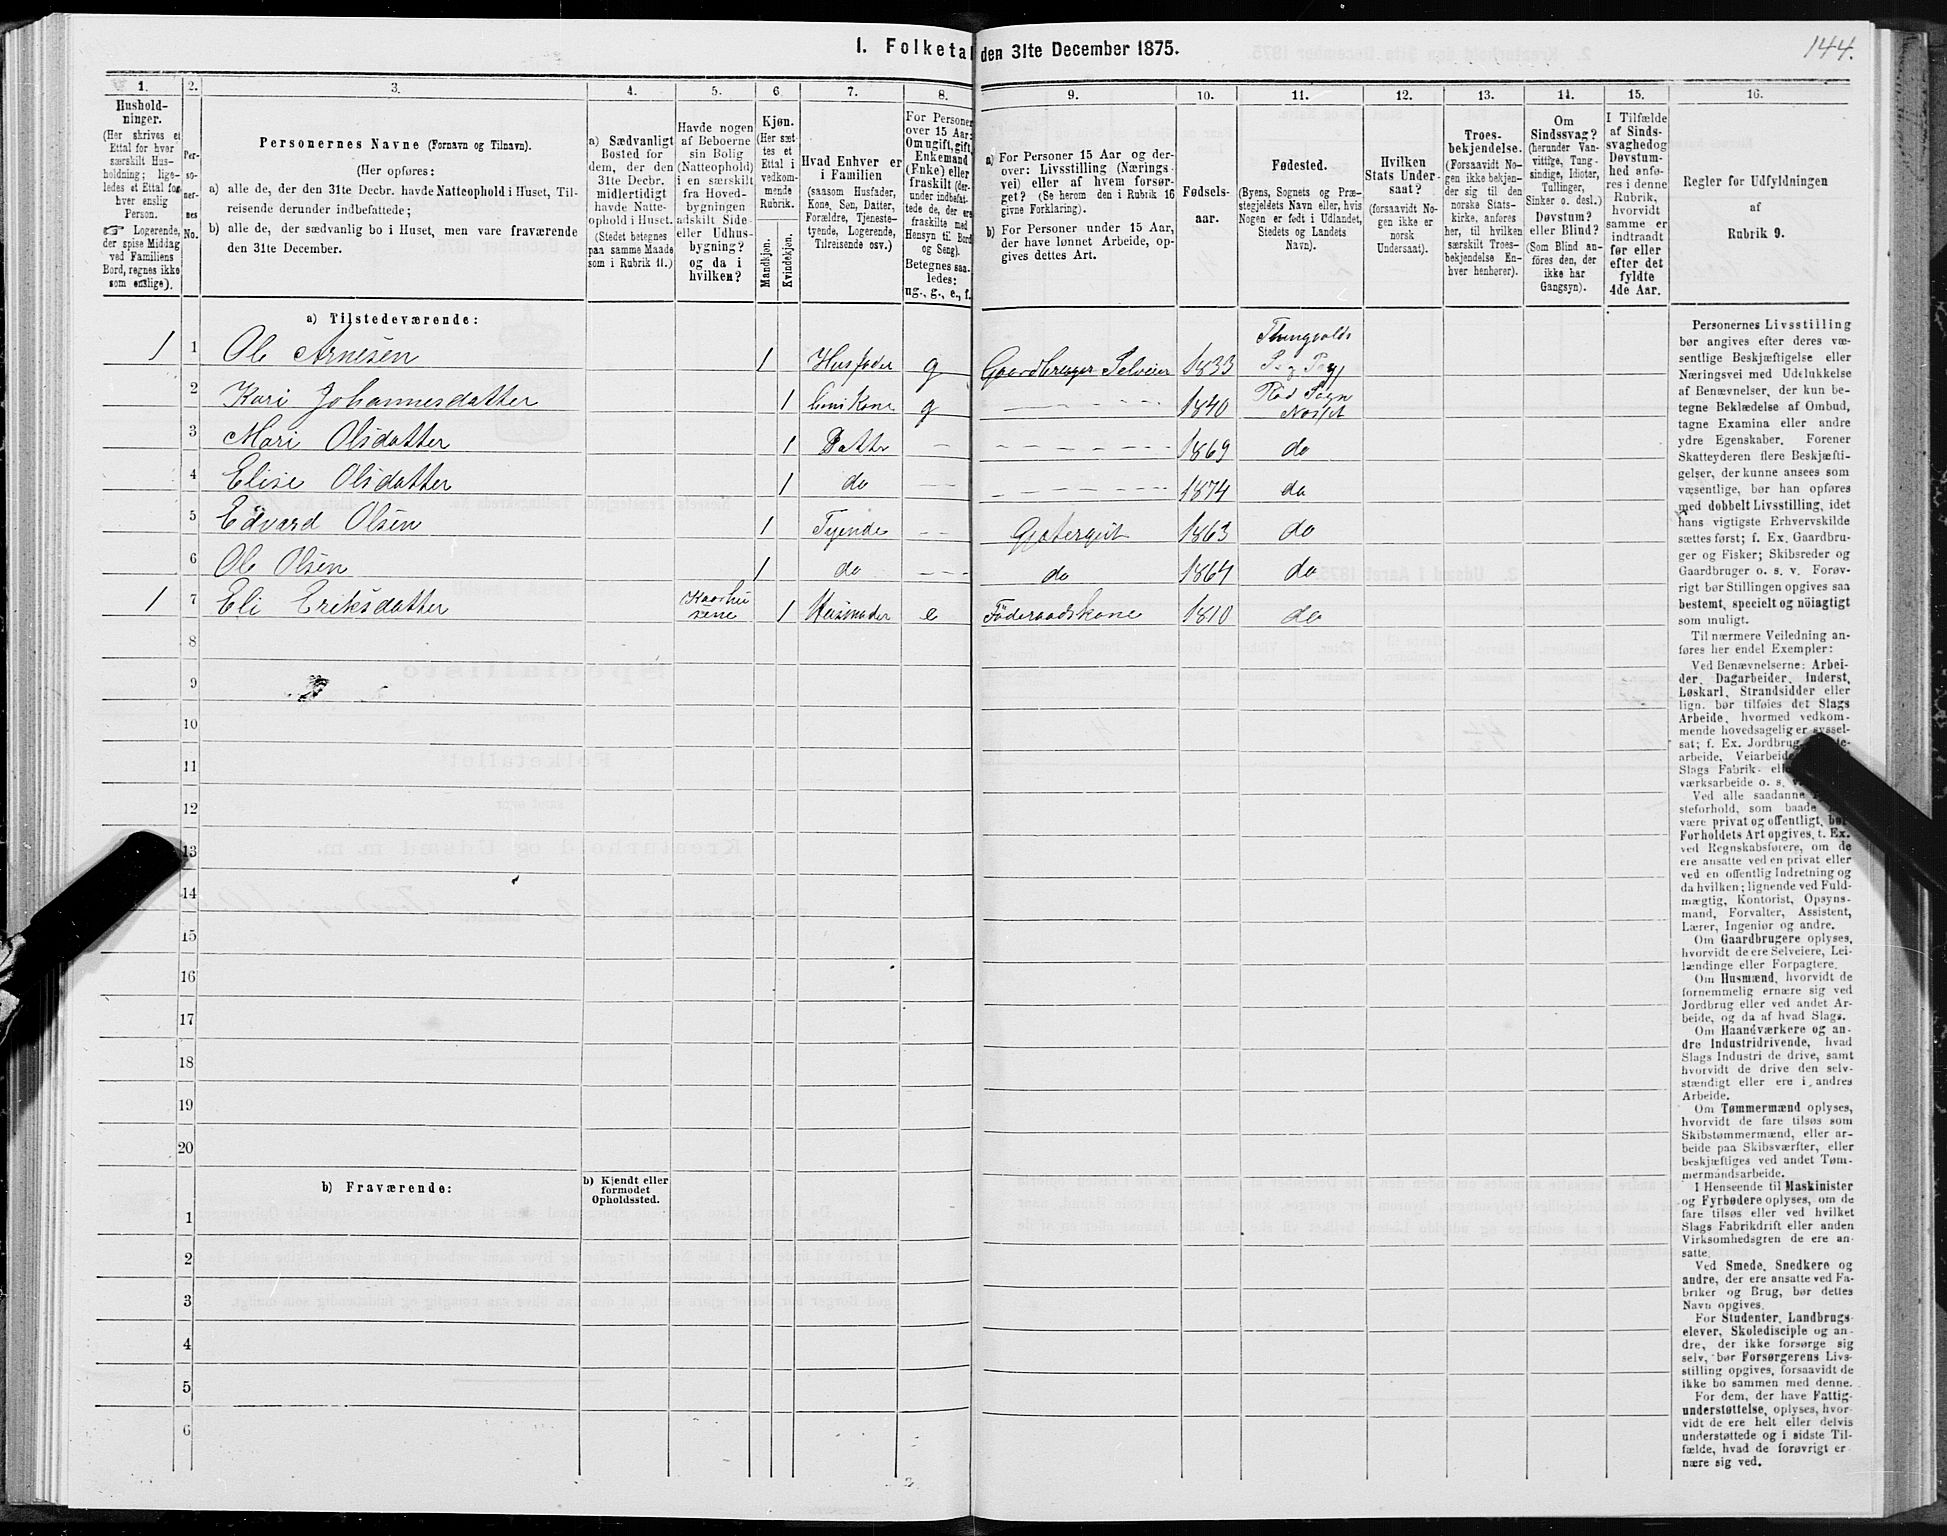 1. Folketal den 31te December 1875.
144.
1. 2. 3. 4. 5. 6. 7. 8. 9. 10. 11. 12. 13. 14. 15. 16.
Hushold-
ninger.
(Her skrives et
Ettal for hver
særskilt Hus-
holdning; lige-
ledes et Ettal for
hver enslig
Person.
☞ Logerende,
der spise Middag
ved Familiens
Bord, regnes ikke
som enslige).
Per-
so-
ner-
nes
No.
Personernes Navne (Fornavn og Tilnavn).
(Her opføres:
a) alle de, der den 31te Decbr. havde Natteophold i Huset, Til-
reisende derunder indbefattede;
b) alle de, der sædvanlig bo i Huset, men vare fraværende
den 31te December.
a) Sædvanligt
Bosted for
dem, der den
31te Decbr.
midlertidigt
havde Natte-
ophold i Huset.
(Stedet betegnes
paa samme Maade
som i Rubrik 11.)
Havde nogen
af Beboerne
sin Bolig
(Natteophold)
i en særskilt
fra Hoved-
bygningen
adskilt Side-
eller Udhus-
bygning?
og da i
hvilken?
Kjøn.
(Her sæt-
tes et
Ettal i
vedkom-
mende
Rubrik.
Mandkjøn.
Kvindekjøn.
Hvad Enhver er
i Familien
(saasom Husfader,
Kone, Søn, Datter,
Forældre, Tjeneste-
tyende, Logerende,
Tilreisende osv.)
For Personer
over 15 Aar:
Om ugift, gift,
Enkemand
(Enke) eller
fraskilt (der-
under indbefat-
tede de, der ere
fraskilte med
Hensyn til Bord
og Seng).
Betegnes saa-
ledes:
ug., g., e., f.
a) For Personer 15 Aar og der-
over: Livsstilling (Nærings-
vei) eller af hvem forsør-
get? (Se herom den i Rubrik 16
givne Forklaring).
b) For Personer under 15 Aar,
der have lønnet Arbeide, op-
gives dettes Art.
Fødsels-
aar.
Fødested.
(Byens, Sognets og Præ-
stegjeldets Navn eller, hvis
Nogen er født i Udlandet,
Stedets og Landets
Navn).
Hvilken
Stats Under-
saat?
(forsaavidt No-
gen ikke er
norsk
Undersaat).
Troes-
bekjendelse.
(Forsaavidt No-
gen ikke bekjen-
der sig til den
norske Stats-
kirke, anføres
her, til hvilken
særskilt Troes-
bekjendelse En-
hver henhører).
Om
Sindssvag?
(herunder Van-
vittige, Tung-
sindige, Idioter,
Tullinger,
Sinker o. desl.)
Døvstum?
eller Blind?
(Som Blind an-
føres den, der
ikke har
Gangsyn).
I Tilfælde
af Sinds-
svaghed og
Døvstum-
hed anfø-
res i denne
Rubrik,
hvorvidt
samme er
indtraadt
før eller
efter det
fyldte
4de Aar.
Regler for Udfyldningen
af
Rubrik 9.
a) Tilstedeværende:
1 1 Ole Arnesen 1 Husfader g Gaardbruger Selveier 1833 Thingvolds
2 Kari Johannesdatter 1 Kone g 1840 Rød Sogn
Nosset
3 Mari Olsdatter 1 Datter 1869 do
4 Elise Olsdatter 1 do 1874 do
5 Edvard Olsen 1 Tyende Gjætergut 1863 do
6 Ole Olsen 1 do do 1864 do
1 7 Eli Eriksdatter 1 Husmoder e Föderaadskone 1810 do
8
9
10
11
12
13
14
15
16
17
18
19
20
b) Fraværende:
b) Kjendt eller
formodet
Opholdssted.
1
2
3
4
5
6
Personernes Livsstilling
bør angives efter deres væ-
sentlige Beskjæftigelse eller
Næringsvei med Udelukkelse
af Benævnelser, der kun be-
tegne Beklædelse af Ombud,
tagne Examina eller andre
ydre Egenskaber. Forener
Skatteyderen flere Beskjæfti-
gelser, der kunne ansees som
væsentlige, bør han opføres
med dobbelt Livsstilling, idet
hans vigtigste Erhvervskilde
sættes først; f. Ex. Gaardbru-
ger og Fisker; Skibsreder og
Gaardbruger o. s. v. Forøv-
rigt bør Stillingen opgives saa
bestemt, specielt og nöiagtigt
som muligt.
Til nærmere Veiledning an-
føres her endel Exempler:
Ved Benævnelserne: Arbei-
der, Dagarbeider, Inderst,
Løskarl, Strandsidder eller
lign. bør tilføies det Slags
Arbeide, hvormed vedkom-
mende hovedsagelig er syssel-
sat; f. Ex. Jordbrug,
arbeide, Veiarbeide
Slags Fabrik- eller
værksarbeide o. s. v.
Ved alle saadanne
steforhold, som baade
være privat og offentligt, bør
Forholdets Art opgives, t. Ex.
ved Regnskabsførere, om de
ere ansatte ved en privat eller
ved en offentlig Indretning og
da hvilken; lignende ved Fuld-
mægtig, Kontorist, Opsyns-
mand, Forvalter, Assistent,
Lærer, Ingeniør og andre.
Om Gaardbrugere oplyses,
hvorvidt de ere Selveiere, Lei-
lændinge eller Forpagtere.
Om Husmænd, hvorvidt de
fornemmelig ernære sig ved
Jordbrug eller ved andet Ar-
beide, og da af hvad Slags.
Om Haandværkere og an-
dre Industridrivende, hvad
Slags Industri de drive, samt
hvorvidt de drive den selv-
stændigt eller ere i andres
Arbeide.
Om Tømmermænd oplyses,
hvorvidt de fare tilsøs som
Skibstømmermænd, eller ar-
beide paa Skibsværfter, eller
beskjæftiges ved andet Tøm-
mermandsarbeide.
I Henseende til Maskinister
og Fyrbødere oplyses, om de
fare tilsøs eller ved hvilket
Slags Fabrikdrift eller anden
Virksomhedsgren de ere an-
satte.
Ved Smede, Snedkere og
andre, der ere ansatte ved Fa-
briker og Brug, bør dettes
Navn opgives.
For Studenter, Landbrugs-
elever, Skoledisciple og an-
dre, der ikke forsørge sig
selv, bør Forsørgerens Livs-
stilling opgives, forsaavidt de
ikke bo sammen med denne.
For dem, der have Fattig-
understøttelse, oplyses, hvor-
vidt de ere helt eller delvis
understøttede og i sidste Til-
fælde, hvad de forøvrigt er-
nære sig ved.